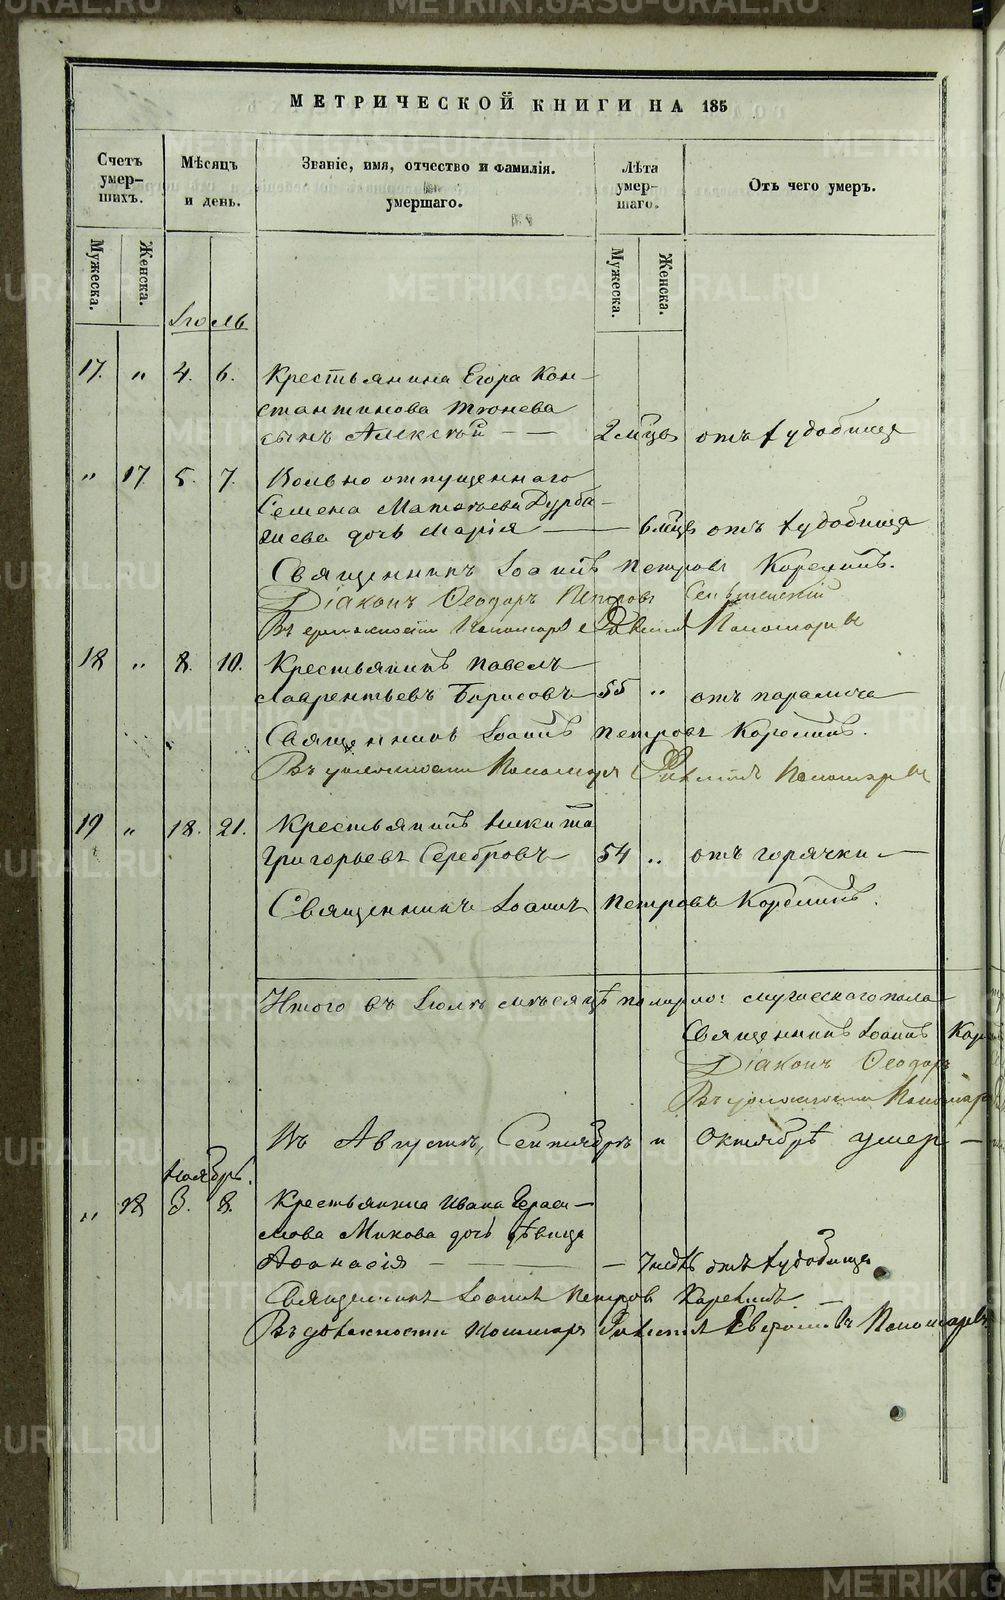 МЕТРИЧЕСКОЙ КНИГИ НА 185
Счетъ умер-шихъ.
Мѣсяцъ и день.
Званіе, имя, отчество и фамилія. умершаго.
Лѣта умер-шаго.
Отъ чего умеръ.
Мужеска. Женска.
Мужеска. Женска.
Іюль
17. " 4. 6. Крестьянина Егора Кон-
стантинова Тюнева
сынъ Алексѣй — — 2 мѣца отъ худобища
" 17. 5. 7. Вольноотпущеннаго
Семена Матвѣева
дочь Марія — 6 мѣцъ отъ худобища
Священникъ Іоаннъ Петровъ
Діаконъ Ѳеодоръ Петровъ
Въ должности Пономаря Пономаревъ
18 " 8. 10. Крестьянинъ Павелъ
Лаврентьевъ Борисовъ 55 " отъ паралича
Священникъ Іоаннъ Петровъ
Въ должности Пономаря Пономаревъ
19 " 18. 21. Крестьянинъ Никита
Григорьевъ Серебровъ 54 " отъ горячки —
Священникъ Іоаннъ Петровъ
Итого въ Іюлѣ мѣсяцѣ померло: мужескаго пола
Священникъ Іоаннъ
Діаконъ Ѳеодоръ
Въ должности Пономаря
Въ Августѣ, Сентябрѣ и Октябрѣ умер —
Ноябрь.
" 18 3. 8. Крестьянина Ивана Гераси-
мова Микова дочь дѣвица
Аѳанасія — — 7 недѣ отъ худобища
Священникъ Іоаннъ Петровъ
Въ должности Пономаря Пономаревъ
METRIKI.GASO-URAL.RU